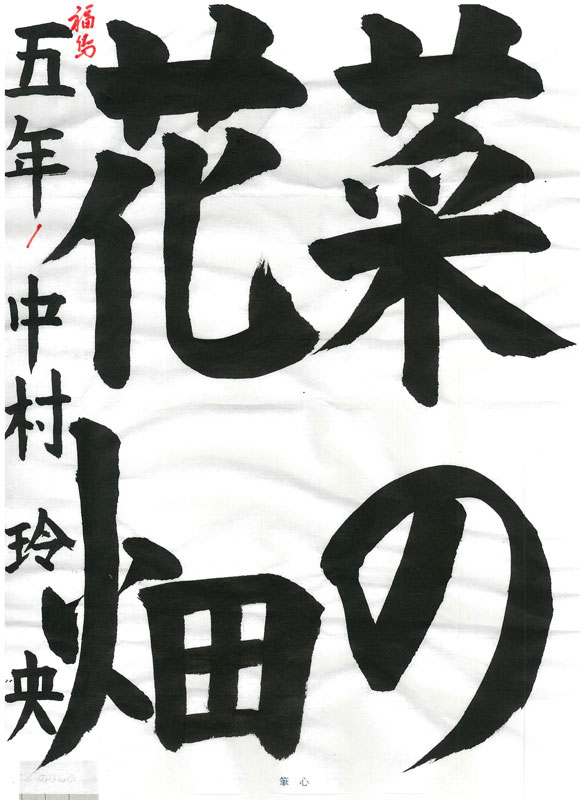 菜の
花畑
五年 中村 玲央
筆心